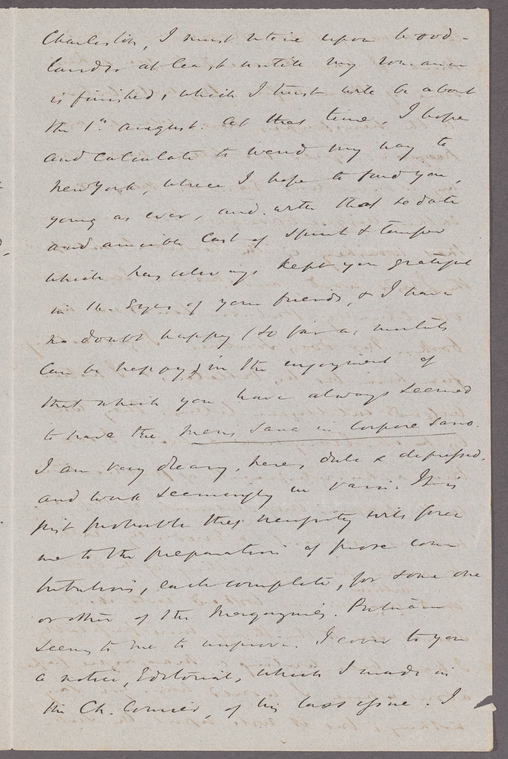 Charleston, I must retire upon Wood-
lands, at least until my romance
is finished, which I trust will be about
the 1st August. At that time, I hope
and calculate to wend my way to
New York, where I hope to find you,
young as ever, and with that sedate
and amiable cast of spirit & temper
which has always kept you grateful
in the eyes of your friends, & I have
no doubt happy (so far as mortals
can be happy) in the enjoyment of
that which you have always seemed
to have the mens sana in corpore sano.
I am very dreary, here, dull & depressed,
and work seemingly in vain. It is
just probable that necessity will force
me to the preparation of prose con
tributions, each complete, for some one
or other of the Magazines. Putnam
seems to me to improve. I cover to you
a notice, Editorial, which I made in
the Ch. Courier, of his last issue. I